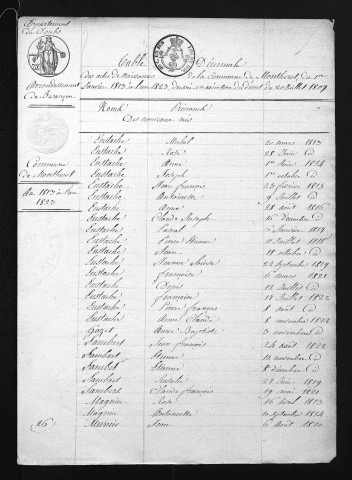 Département
du Doubs
Arrondissement
de Besançon
Commune
de Montherot
An 1813 à l'an
1823
Table Décennale
des actes de naissances de la Commune de Montherot, du 1er
Janvier 1813 à l'an 1823, dressée en exécution du décret du 20 Juillet 1807
Noms Prénoms
Des nouveaux nés
Eustache Michel 20 mars 1813
Eustache Rose 28 Juin id
Eustache Anne 1er Juin 1814
Eustache Joseph 1er octobre id
Eustache Jean françois 23 février 1815
Eustache Antoinette 9 Juillet id
Eustache Anne 28 août 1816
Eustache Claude Joseph 16 décembre id
Eustache Pascal 5 Janvier 1819
Eustache Pierre Etienne 11 Juillet 1818
Eustache Jean 18 octobre id
Eustache Jeanne 22 septembre 1819
Eustache françoise 6 mars 1821
Eustache Denis 12 Juillet id
Eustache françoise 13 Juillet 1822
Eustache Pierre françois 8 août id
Eustache Anne Claude 8 novembre 1822
Anne Baptiste 3 novembre id
Lambert Jean françois 24 août 1822
Lambert Etienne 10 novembre id
Lambert Etienne 8 décembre id
Lambert Natalie 28 Juin 1819
Lambert Claude françois 19 mai 1821
Magnin Rose 16 avril 1813
Magnin Antoinette 10 septembre 1814
26 Mercier Jean 6 août 1820